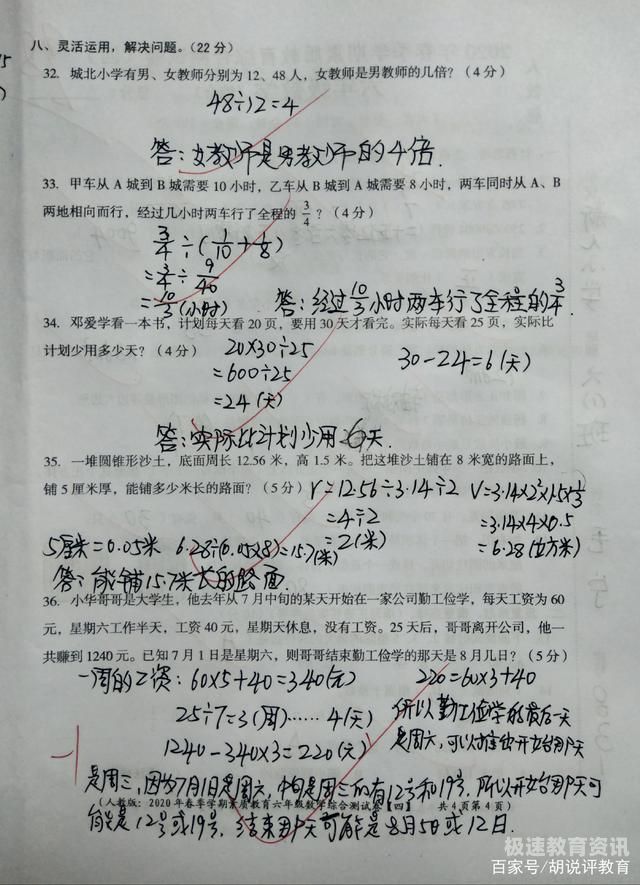 八、灵活运用，解决问题。（22 分）
32. 城北小学有男、女教师分别为 12、48 人，女教师是男教师的几倍？（4 分）
48÷12=4
答：女教师是男教师的4倍.
33. 甲车从 A 城到 B 城需要 10 小时，乙车从 B 城到 A 城需要 8 小时，两车同时从 A、B
两地相向而行，经过几小时两车行了全程的 3/4 ？（4 分）
3/4÷(1/10+1/8)
=3/4÷9/40
=10/3(小时)
答：经过10/3小时两车行了全程的3/4.
34. 邓爱学看一本书，计划每天看 20 页，要用 30 天才看完。实际每天看 25 页，实际比
计划少用多少天？（4 分）
20×30÷25
=600÷25
=24(天)
30-24=6(天)
答：实际比计划少用6天.
35. 一堆圆锥形沙土，底面周长 12.56 米，高 1.5 米。把这堆沙土铺在 8 米宽的路面上，
铺 5 厘米厚，能铺多少米长的路面？（5 分）
r=12.56÷3.14÷2
=4÷2
=2(米)
V=3.14×2²×1.5×1/3
=3.14×4×0.5
=6.28(立方米)
5厘米=0.05米 6.28÷(0.05×8)=15.7(米)
答：能铺15.7米长的路面.
36. 小华哥哥是大学生，他去年从 7 月中旬的某天开始在一家公司勤工俭学，每天工资为 60
元，星期六工作半天，工资 40 元，星期天休息，没有工资。25 天后，哥哥离开公司，他一
共赚到 1240 元。已知 7 月 1 日是星期六，则哥哥结束勤工俭学的那天是 8 月几日？（5 分）
一周的工资：60×5+40=340(元)
25÷7=3(周)……4(天)
1240-340×3=220(元)
220=60×3+40
所以勤工俭学的最后一天
是周六，可以开始那天
-1
是周三，因为7月1日是周六，中旬是周三的有12号和19号，所以开始那天可
能是12号或19号，结束那天可能是8月5日或12日.
（人教版：2020 年春季学期素质教育六年级数学综合测试卷【四】 共 4 页第 4 页）
极速教育资讯
百家号/胡说评教育